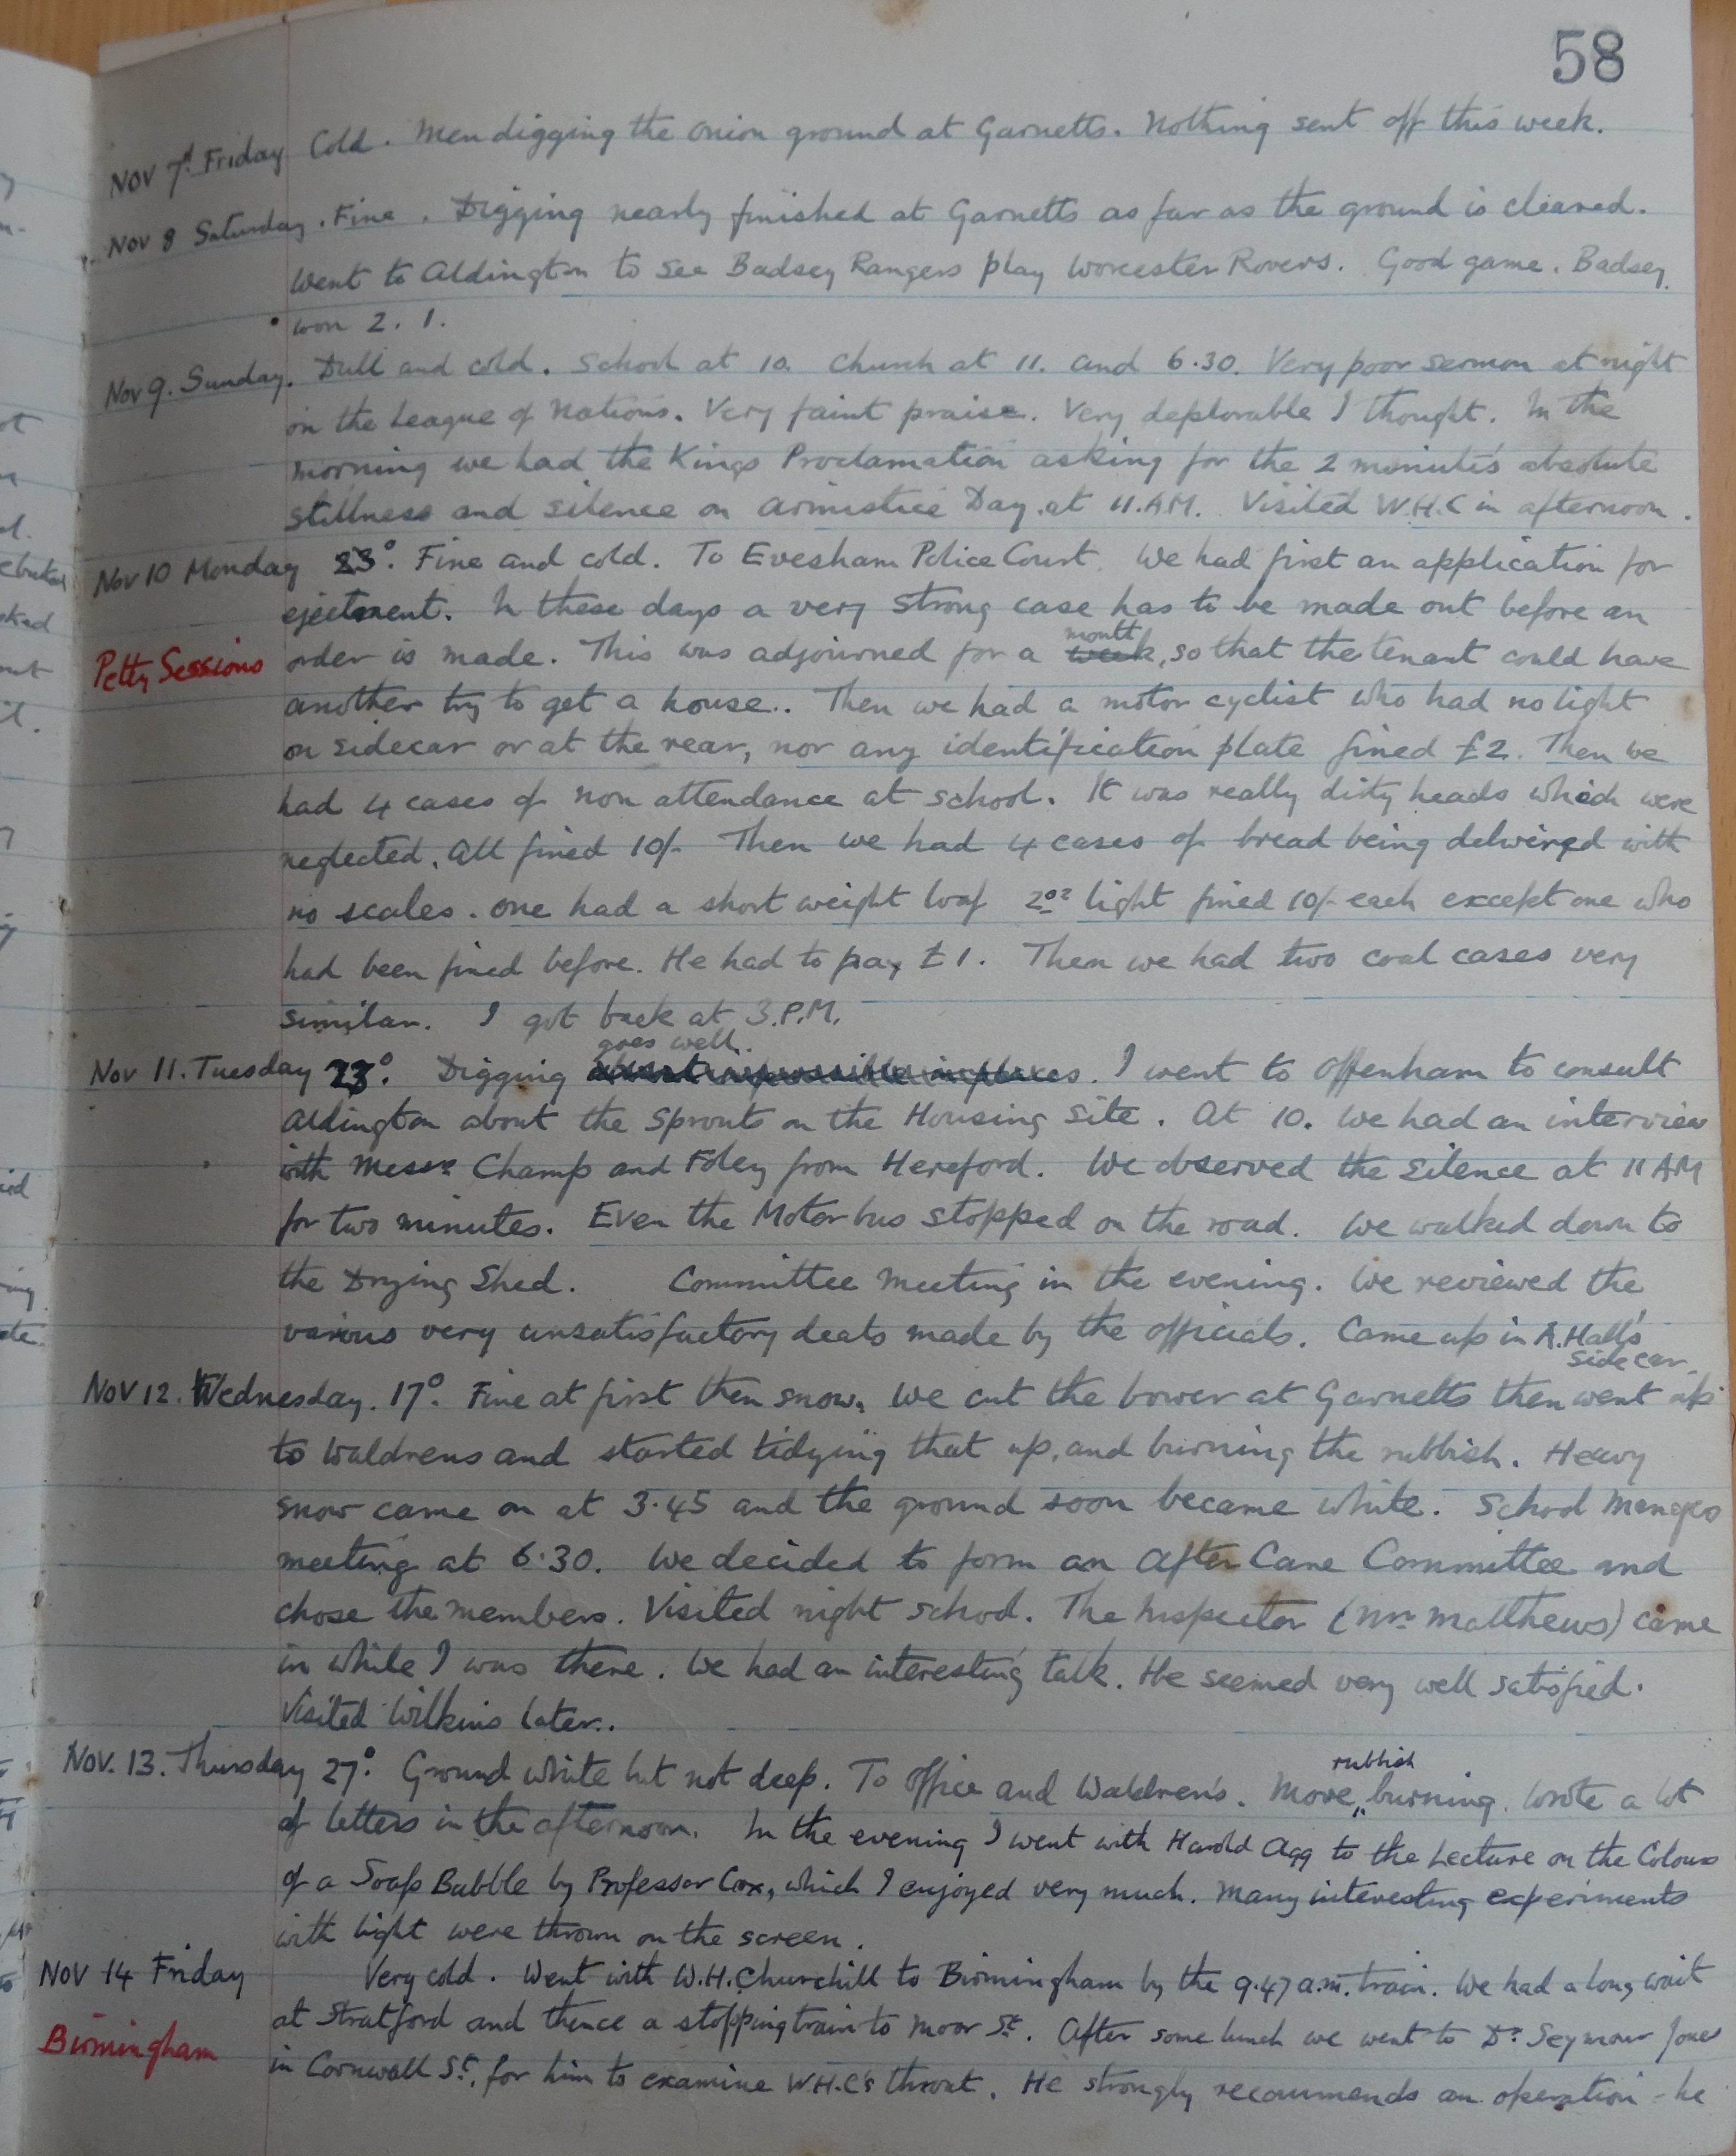 58
Nov 7th Friday Cold. Men digging the onion ground at Garnetts. Nothing sent off this week.
Nov 8 Saturday. Fine. Digging nearly finished at Garnetts as far as the ground is cleared.
Went to Aldington to see Badsey Rangers play Worcester Rovers. Good game. Badsey
won 2. 1.
Nov 9. Sunday. Dull and cold. School at 10. Church at 11. and 6.30. Very poor sermon at night
on the League of Nations. Very faint praise. Very deplorable I thought. In the
morning we had the Kings Proclamation asking for the 2 minute's absolute
stillness and silence on Armistice Day at 11.AM. Visited W.H.C in afternoon.
Nov 10 Monday 23°. Fine and cold. To Evesham Police Court. We had first an application for
ejectment. In these days a very strong case has to be made out before an
month
Petty Sessions order is made. This was adjourned for a week, so that the tenant could have
another try to get a house.. Then we had a motor cyclist who had no light
on sidecar or at the rear, nor any identification plate fined £2. Then we
had 4 cases of non attendance at school. It was really dirty heads which were
neglected. All fined 10/- Then we had 4 cases of bread being delivered with
no scales. One had a short weight loaf 2oz light fined 10/- each except one who
had been fined before. He had to pay £1. Then we had two coal cases very
similar. I got back at 3.P.M.
goes well.
Nov 11. Tuesday 23°. Digging almost impossible in places. I went to Offenham to consult
Aldington about the Sprouts on the Housing Site. At 10. we had an interview
with Messrs Champ and Foley from Hereford. We observed the Silence at 11 AM
for two minutes. Even the Motor bus stopped on the road. We walked down to
the Drying Shed. Committee Meeting in the evening. We reviewed the
various very unsatisfactory deals made by the officials. Came up in A. Hall's
Side car.
Nov 12. Wednesday. 17°. Fine at first then snow. We cut the bower at Garnetts then went up
to Waldrens and started tidying that up, and burning the rubbish. Heavy
snow came on at 3.45 and the ground soon became white. School Mangrs
meeting at 6.30. We decided to form an After Care Committee and
chose the members. Visited night school. The Inspector (Mr. Matthews) came
in while I was there. We had an interesting talk. He seemed very well satisfied.
Visited Wilkins later..
rubbish
Nov. 13. Thursday 27°. Ground white but not deep. To Office and Waldren's. More burning. Wrote a lot
of letters in the afternoon. In the evening I went with Harold Agg to the Lecture on the Colours
of a Soap Bubble by Professor Cox, which I enjoyed very much. Many interesting experiments
with light were thrown on the screen.
Nov 14 Friday Very cold. Went with W.H. Churchill to Birmingham by the 9.47 a.m. train. We had a long wait
at Stratford and thence a stopping train to Moor St. After some lunch we went to Dr. Seymour Jones
Birmingham in Cornwall St. for him to examine W.H.C's throat. He strongly recommends an operation - he